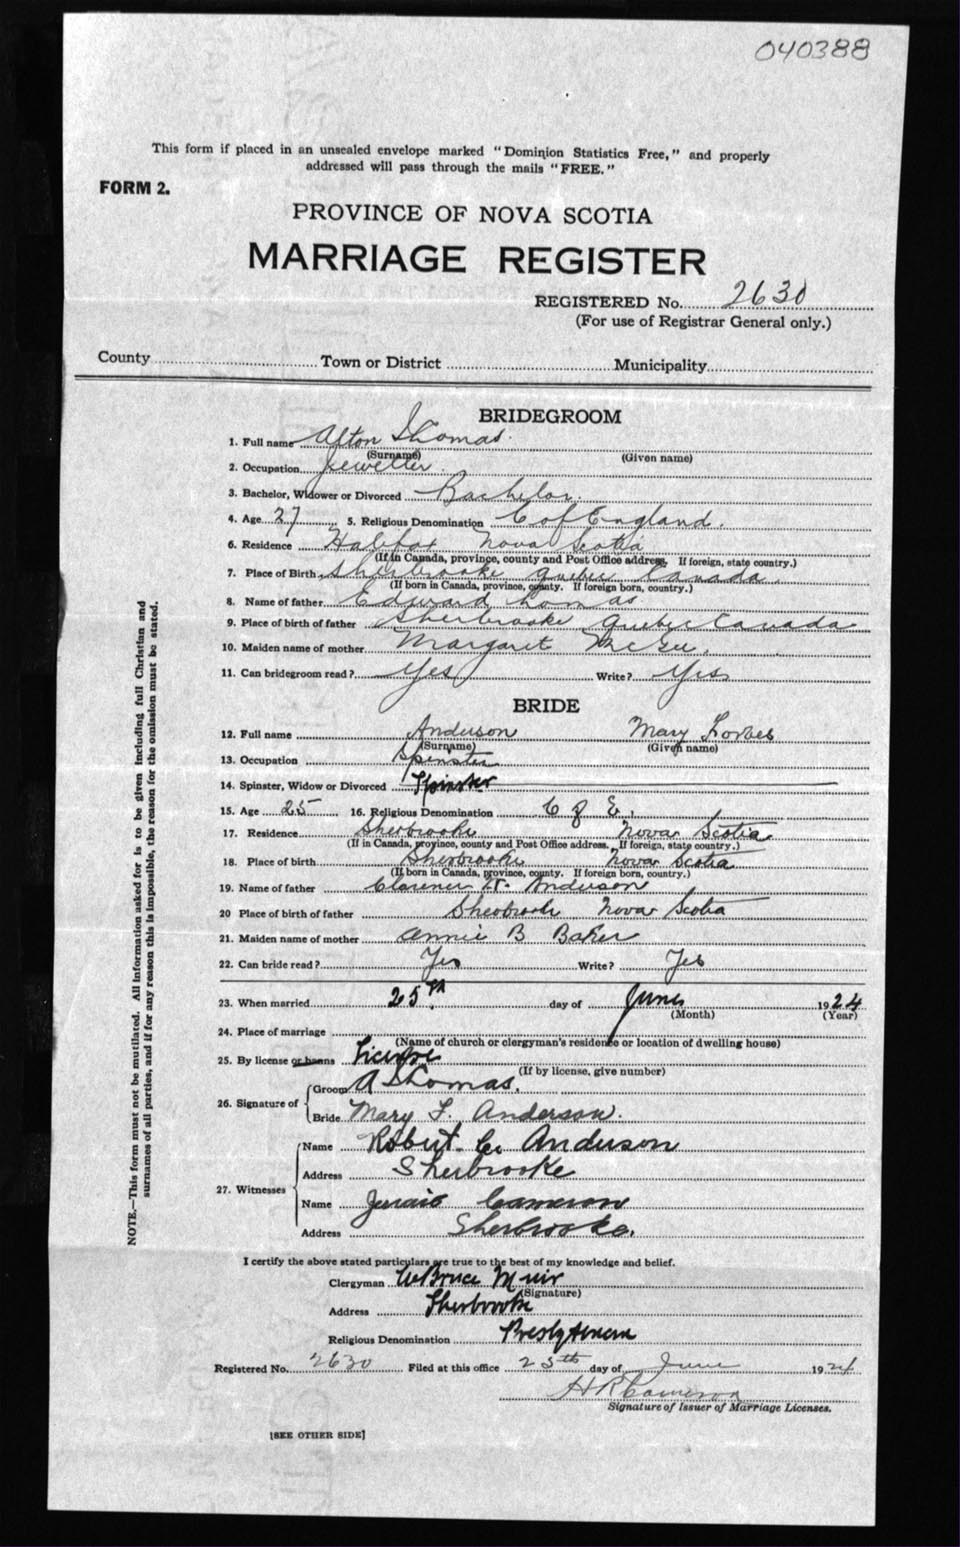 040388
This form if placed in an unsealed envelope marked "Dominion Statistics Free," and properly
addressed will pass through the mails "FREE."
FORM 2.
PROVINCE OF NOVA SCOTIA
MARRIAGE REGISTER
REGISTERED No. 2630
(For use of Registrar General only.)
County Town or District Municipality
BRIDEGROOM
1. Full name Alton Thomas
(Surname) (Given name)
2. Occupation Jeweller
3. Bachelor, Widower or Divorced Bachelor.
4. Age 27 5. Religious Denomination C of England.
6. Residence Halifax Nova Scotia
(If in Canada, province, county and Post Office address. If foreign, state country.)
7. Place of Birth Sherbrooke Quebec Canada.
(If born in Canada, province, county. If foreign born, country.)
8. Name of father Edward
9. Place of birth of father Sherbrooke Quebec Canada
10. Maiden name of mother Margaret McGee.
11. Can bridegroom read? Yes Write? Yes
BRIDE
12. Full name Anderson Mary Forbes
(Surname) (Given name)
13. Occupation Spinster
14. Spinster, Widow or Divorced Spinster
15. Age 25 16. Religious Denomination C of E.
17. Residence Sherbrooke Nova Scotia
(If in Canada, province, county and Post Office address. If foreign, state country.)
18. Place of birth Sherbrooke Nova Scotia
(If born in Canada, province, county. If foreign born, country.)
19. Name of father Clarence Anderson
20 Place of birth of father Sherbrooke Nova Scotia
21. Maiden name of mother Annie B Baker
22. Can bride read? Yes Write? Yes
23. When married 25th day of June 1924
(Month) (Year)
24. Place of marriage
(Name of church or clergyman's residence or location of dwelling house)
25. By license or banns License
(If by license, give number)
26. Signature of
Groom A Thomas.
Bride Mary F. Anderson.
27. Witnesses
Name Robert C. Anderson
Address Sherbrooke
Name Cameron
Address Sherbrooke.
I certify the above stated particulars are true to the best of my knowledge and belief.
Clergyman W Bruce Muir
(Signature)
Address Sherbrooke
Religious Denomination Presbyterian
Registered No. 2630 Filed at this office 25th day of June 1924
H R Cameron
Signature of Issuer of Marriage Licenses.
[SEE OTHER SIDE]
NOTE.—This form must not be mutilated. All information asked for is to be given including full Christian and
surnames of all parties, and if for any reason this is impossible, the reason for the omission must be stated.